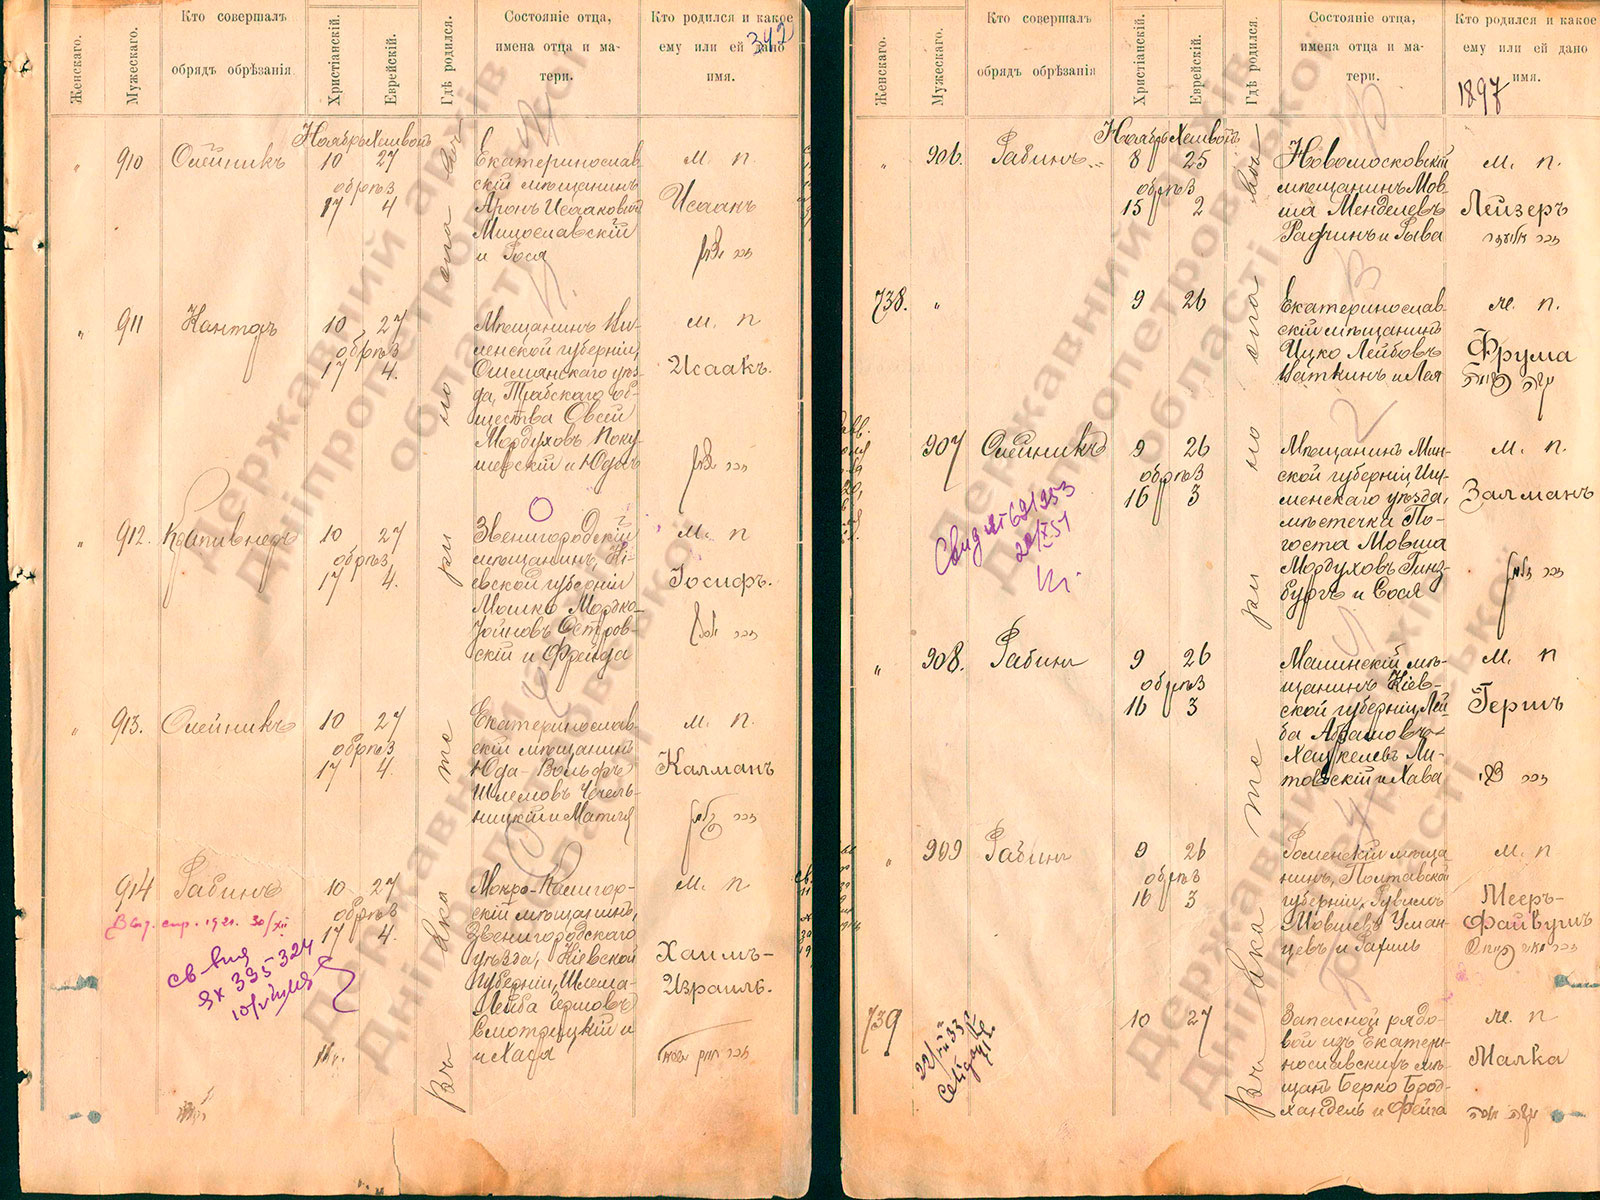 Женскаго.
Мужескаго.
Кто совершалъ
обрядъ обрѣзанія
Христіанскій.
Еврейскій.
Гдѣ родился.
Состояніе отца,
имена отца и ма-
тери.
Кто родился и какое
ему или ей дано
имя.
342
Ноябрь Хешвонъ
910 Олейникъ 10 27
обрѣз
17 4
Екатеринослав
скій мѣщанинъ
Аронъ Исааковъ
Милославскій
и Рося
м. п.
Исаакъ
911 Канторъ 10 27
обрѣз
17 4.
Мѣщанинъ Ви-
ленской губерніи,
Ошмянскаго уѣз-
да, Трабскаго об-
щества Овсей
Мордуховъ Поку-
шевскій и Юдесъ
м. п
Исаакъ.
912. 10 27
обрѣз
17 4.
Звенигородскій
мѣщанинъ, Кі-
евской губерніи
Мошко Мордко-
Хоймовъ Остров-
скій и Фрейда
м. п
Іосифъ.
913. Олейникъ 10 27
обрѣз
17 4.
Екатеринослав-
скій мѣщанинъ
Юда-Вольфъ
Шлемовъ Чечель-
ницкій и Матля
м. п.
Калманъ
914 Рабинъ 10 27
обрѣз
17 4.
Мокро-Калигор-
скій мѣщанинъ,
Звенигородскаго
уѣзда, Кіевской
губерніи, Шлема-
Лейба Гершовъ
Смотрицкій и
и Хася
м. п
Хаимъ-
Израиль.
Выд. спр. 1921. 30/XII
св-вия
ЯХ 335324
Въ г. Екатеринославѣ
Женскаго.
Мужескаго.
Кто совершалъ
обрядъ обрѣзанія
Христіанскій.
Еврейскій.
Гдѣ родился.
Состояніе отца,
имена отца и ма-
тери.
Кто родился и какое
ему или ей дано
имя.
1897
Ноябрь Хешвонъ
906. Рабинъ 8 25
обрѣз
15 2
Новомосковскій
мѣщанинъ Мов-
ша Менделевъ
Рафинъ и Рыва
м. п.
Лейзеръ
זכר אליעזר
738. 9 26
Екатеринослав-
скій мѣщанинъ
Ицко Лейбовъ
Ваткинъ и Лея
м. п.
Фрума
907 Олейникъ 9 26
обрѣз
16 3
Мѣщанинъ Мин-
ской губерніи Иду-
менскаго уѣзда,
мѣстечка По-
госта Мовша
Мордуховъ Гинз-
бургъ и Сося
м. п.
Залманъ
Свид ЯТ 691253
20/X 51
908. Рабинъ 9 26
обрѣз
16 3
Малинскій мѣ-
щанинъ Кіев-
ской губерніи, Лей-
ба Абрамовъ-
Хацкелевъ Ли-
товскій и Хава
м. п
Гершъ
זכר צבי
909 Рабинъ 9 26
обрѣз
16 3
Роменскій мѣща
нинъ, Полтавской
губерніи, Рувимъ
Мовшевъ Уман-
цевъ и Рахиль
м. п
Мееръ-
Файвушъ
739 10 27
Запасной рядо-
вой изъ Екатери-
нославскихъ мѣ-
щанъ Берко Брод-
хандель и Фейга
м. п
Малка
Державний архів
Дніпропетровської
області